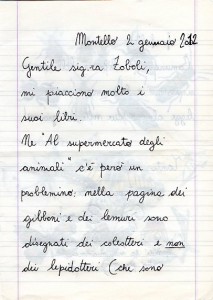 Montello 2 gennaio 2012
Gentile sig.ra Zoboli,
mi piacciono molto i
suoi libri.
Ne "Al supermercato degli
animali" c'è però un
problemino: nella pagina dei
gibboni e dei lemuri sono
disegnati dei coleotteri e non
dei lepidotteri (che sono